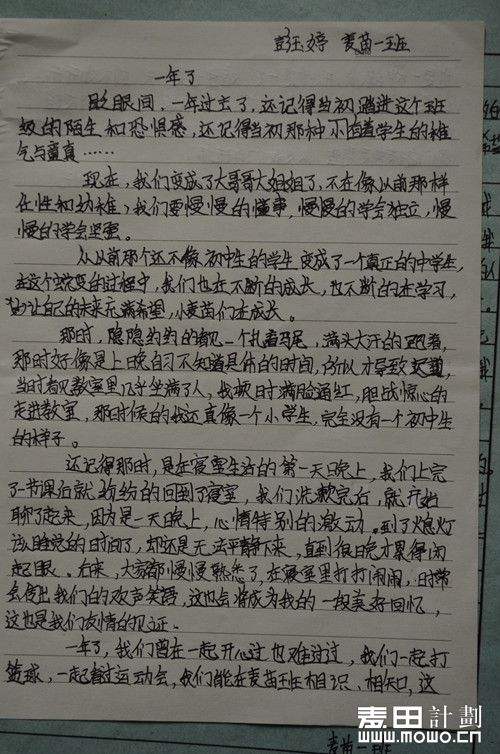 彭玉婷 麦苗一班
一年了
眨眼间，一年过去了，还记得当初踏进这个班
级的陌生和恐惧感，还记得当初那种小学生的稚
气与童真……
现在，我们变成了大哥哥大姐姐了，不在像以前那样
任性和幼稚，我们要慢慢的懂事，慢慢的学会独立，慢
慢的学会坚强。
从以前那个还不像初中生的学生变成了一个真正的中学生，
在这个蜕变的过程中，我们也在不断的成长，也不断的在学习，
让自己的未来充满希望，小麦苗们在成长。
那时，隐隐约约的看见一个扎着马尾，满头大汗的跑着，
那时好像是上晚自习不知道具体的时间，所以才导致迟到，
当时看见教室里几乎坐满了人，我顿时满脸通红，胆战惊心的
走进教室，那时候的我还真像一个小学生，完全没有一个初中生
的样子。
还记得那时，是在寝室生活的第一天晚上，我们上完
了一节课后就纷纷的回到了寝室，我们洗漱完后，就开始
聊了起来，因为是一天晚上，心情特别的激动。到了熄灯
该睡觉的时间了，却还是无法平静下来，直到很晚才累得闭
起眼。后来，大家都慢慢熟悉了，在寝室里打打闹闹，时常
会传出我们的欢声笑语，这也会将成为我的一段美好回忆，
这也是我们友情的见证。
一年了，我们曾在一起开心过也难过过，我们一起打
篮球，一起看过运动会，我们能在麦苗班相识、相知，这
麦苗一班
麦田計劃
www.mowo.cn